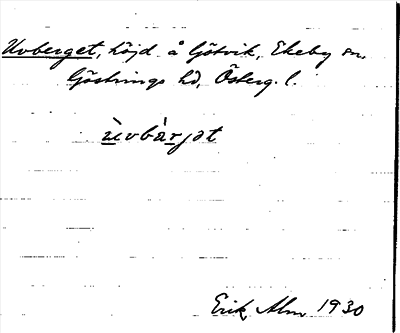 Uvberget, höjd å Götvik, Ekeby sn,
Göstrings hd, Österg. l.
ùvbàrjət
Erik Alm 1930